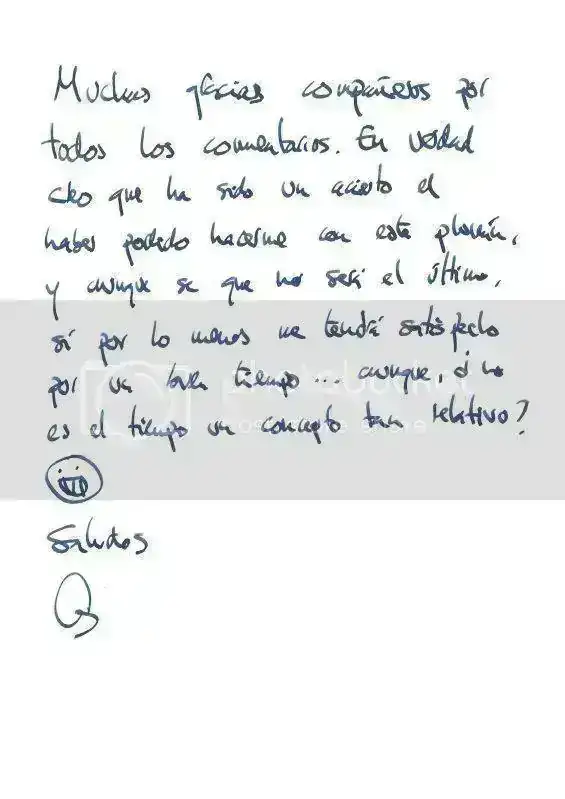 Muchas gracias compañeros por
todos los comentarios. En verdad
creo que ha sido un acierto el
haber podido hacerme con esta plumín,
y aunque se que no será el último,
sí por lo menos me tendrá satisfecho
por un buen tiempo... aunque, ¿no
es el tiempo un concepto tan relativo?
Saludos